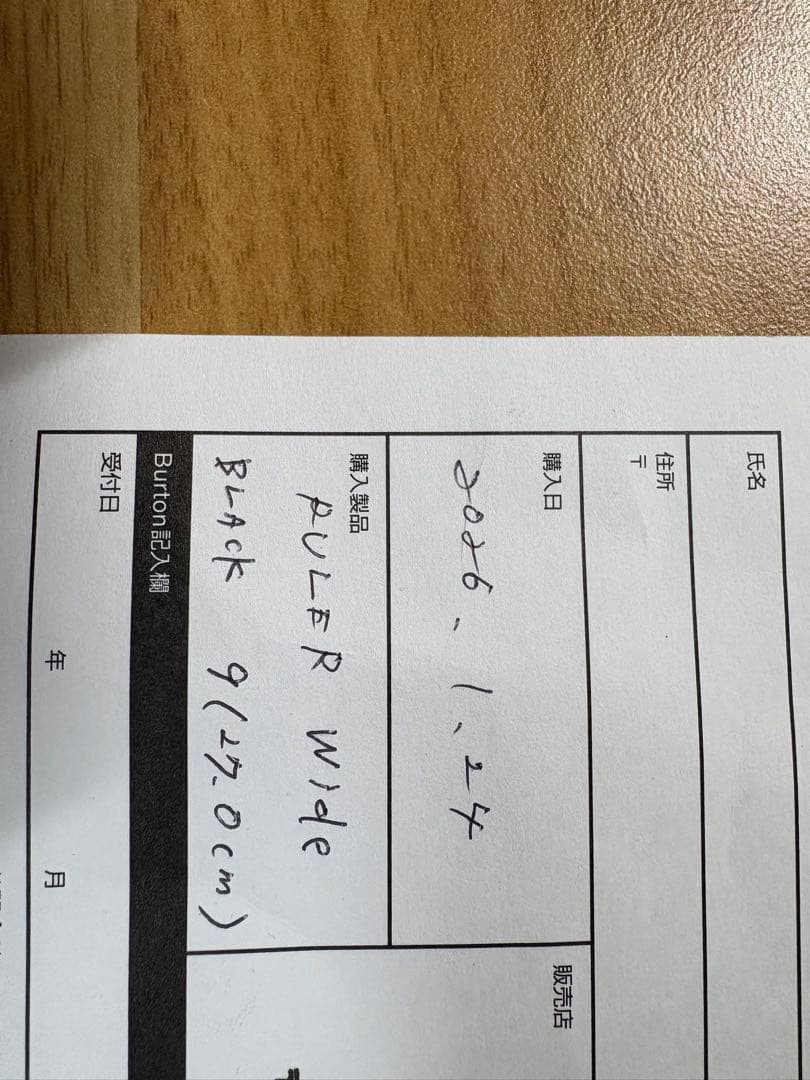 氏名
住所
〒
購入日
2026、1、24
販売店
購入製品
RULER Wide
BLACK 9(27.0cm)
Burton記入欄
受付日
年 月